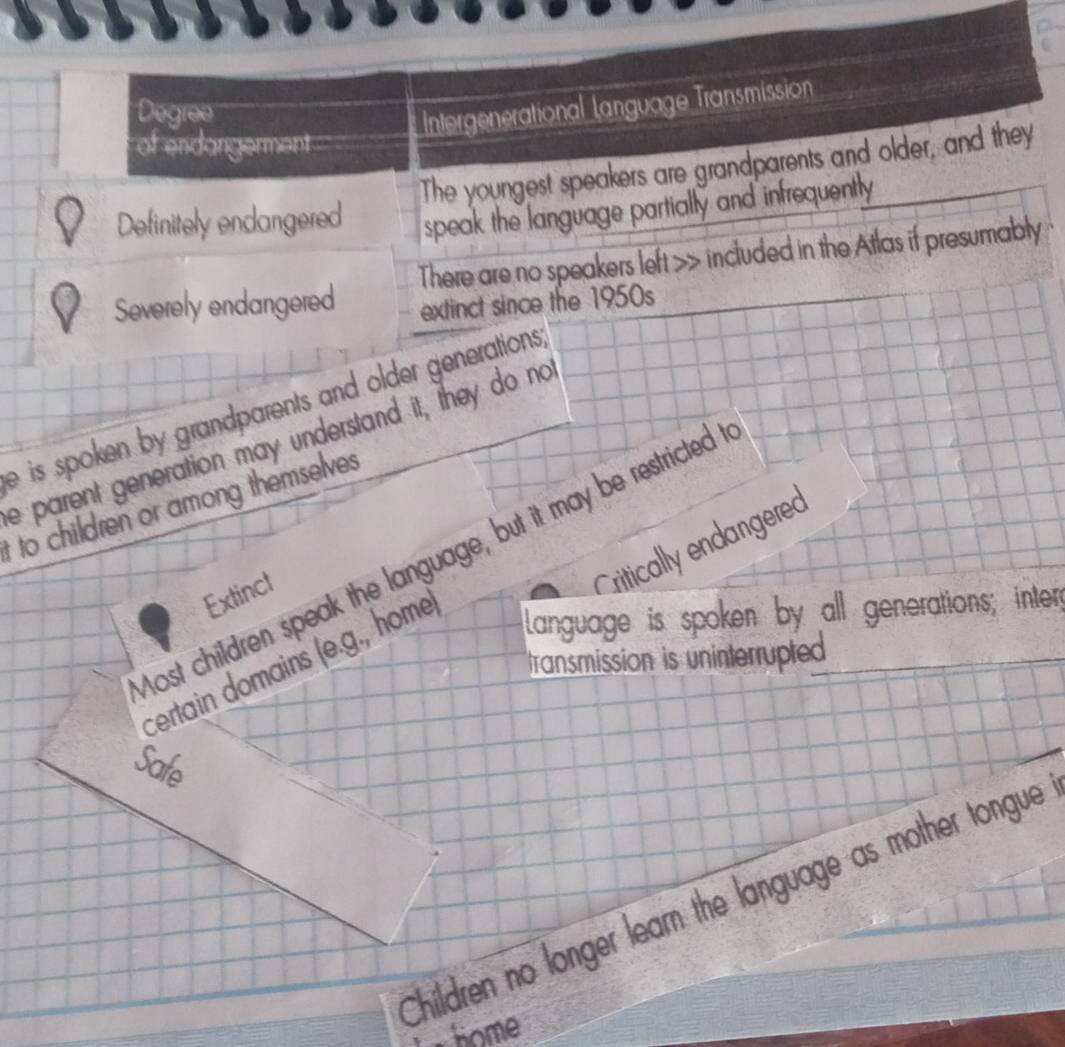 Degree
of endangerment
Intergenerational Language Transmission
Definitely endangered
The youngest speakers are grandparents and older, and they
speak the language partially and infrequently
Severely endangered
There are no speakers left >> included in the Atlas if presumably
extinct since the 1950s
ge is spoken by grandparents and older generations;
he parent generation may understand it, they do not
it to children or among themselves
Extinct
Most children speak the language, but it may be restricted to
certain domains (e.g., home)
Critically endangered
language is spoken by all generations; interg
transmission is uninterrupted
Safe
Children no longer learn the language as mother tongue in
home